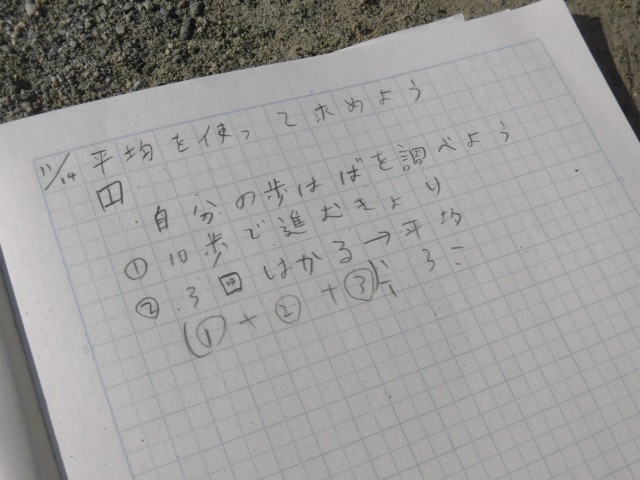 11/14 平均を使って求めよう
1
自分の歩はばを調べよう
① 10歩で進むきょり
② 3回はかる→平均
(①+②+③)÷3=